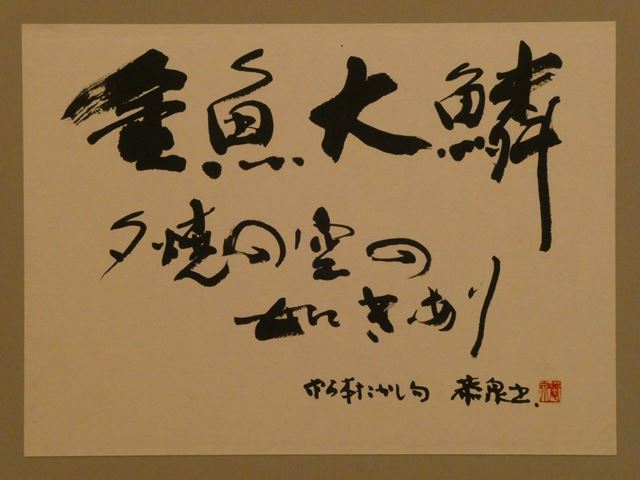 金魚大鱗
夕焼の空の
如きあり
松本たかし句 泉書